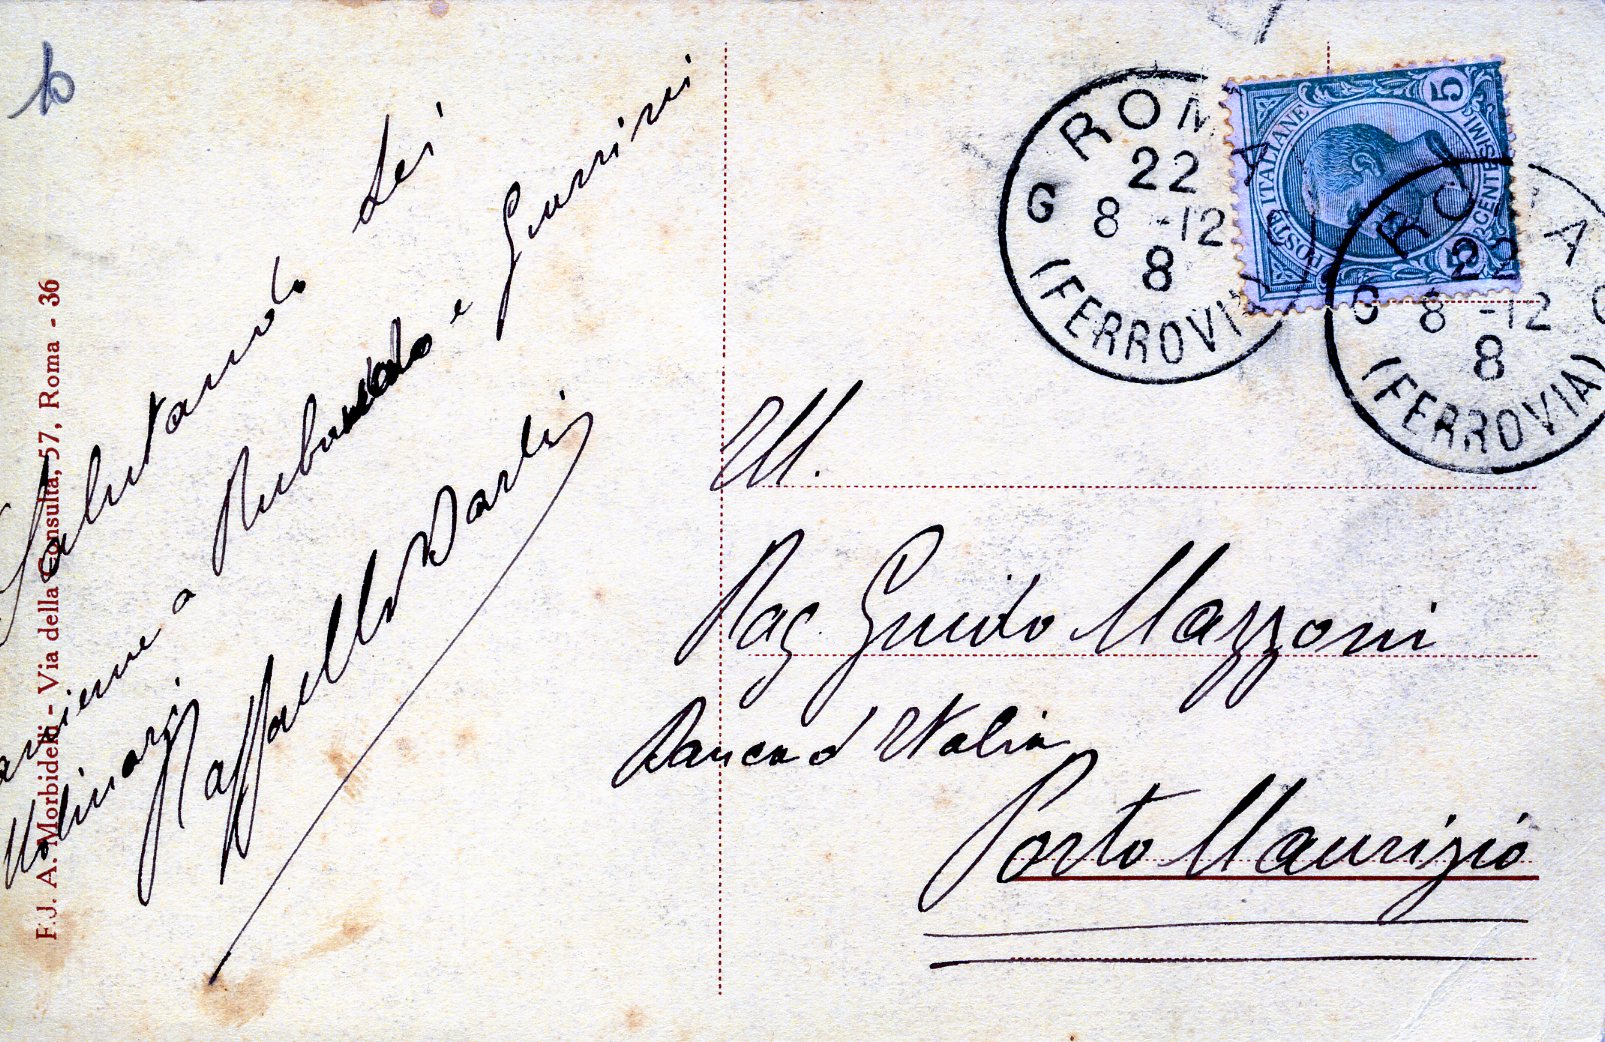 Salutando Lei
assieme a Rubando e Guerrini
Molinari
Raffaello Darli
F.J. A. Morbidelli - Via della Consulta, 57, Roma - 36
ROMA
22
8 -12
8
(FERROVIA)
POSTE ITALIANE
CENTESIMI
5
5
ROMA
22
8 -12
8
(FERROVIA)
M.
Rag. Guido Mazzoni
Banca d'Italia
Porto Maurizio